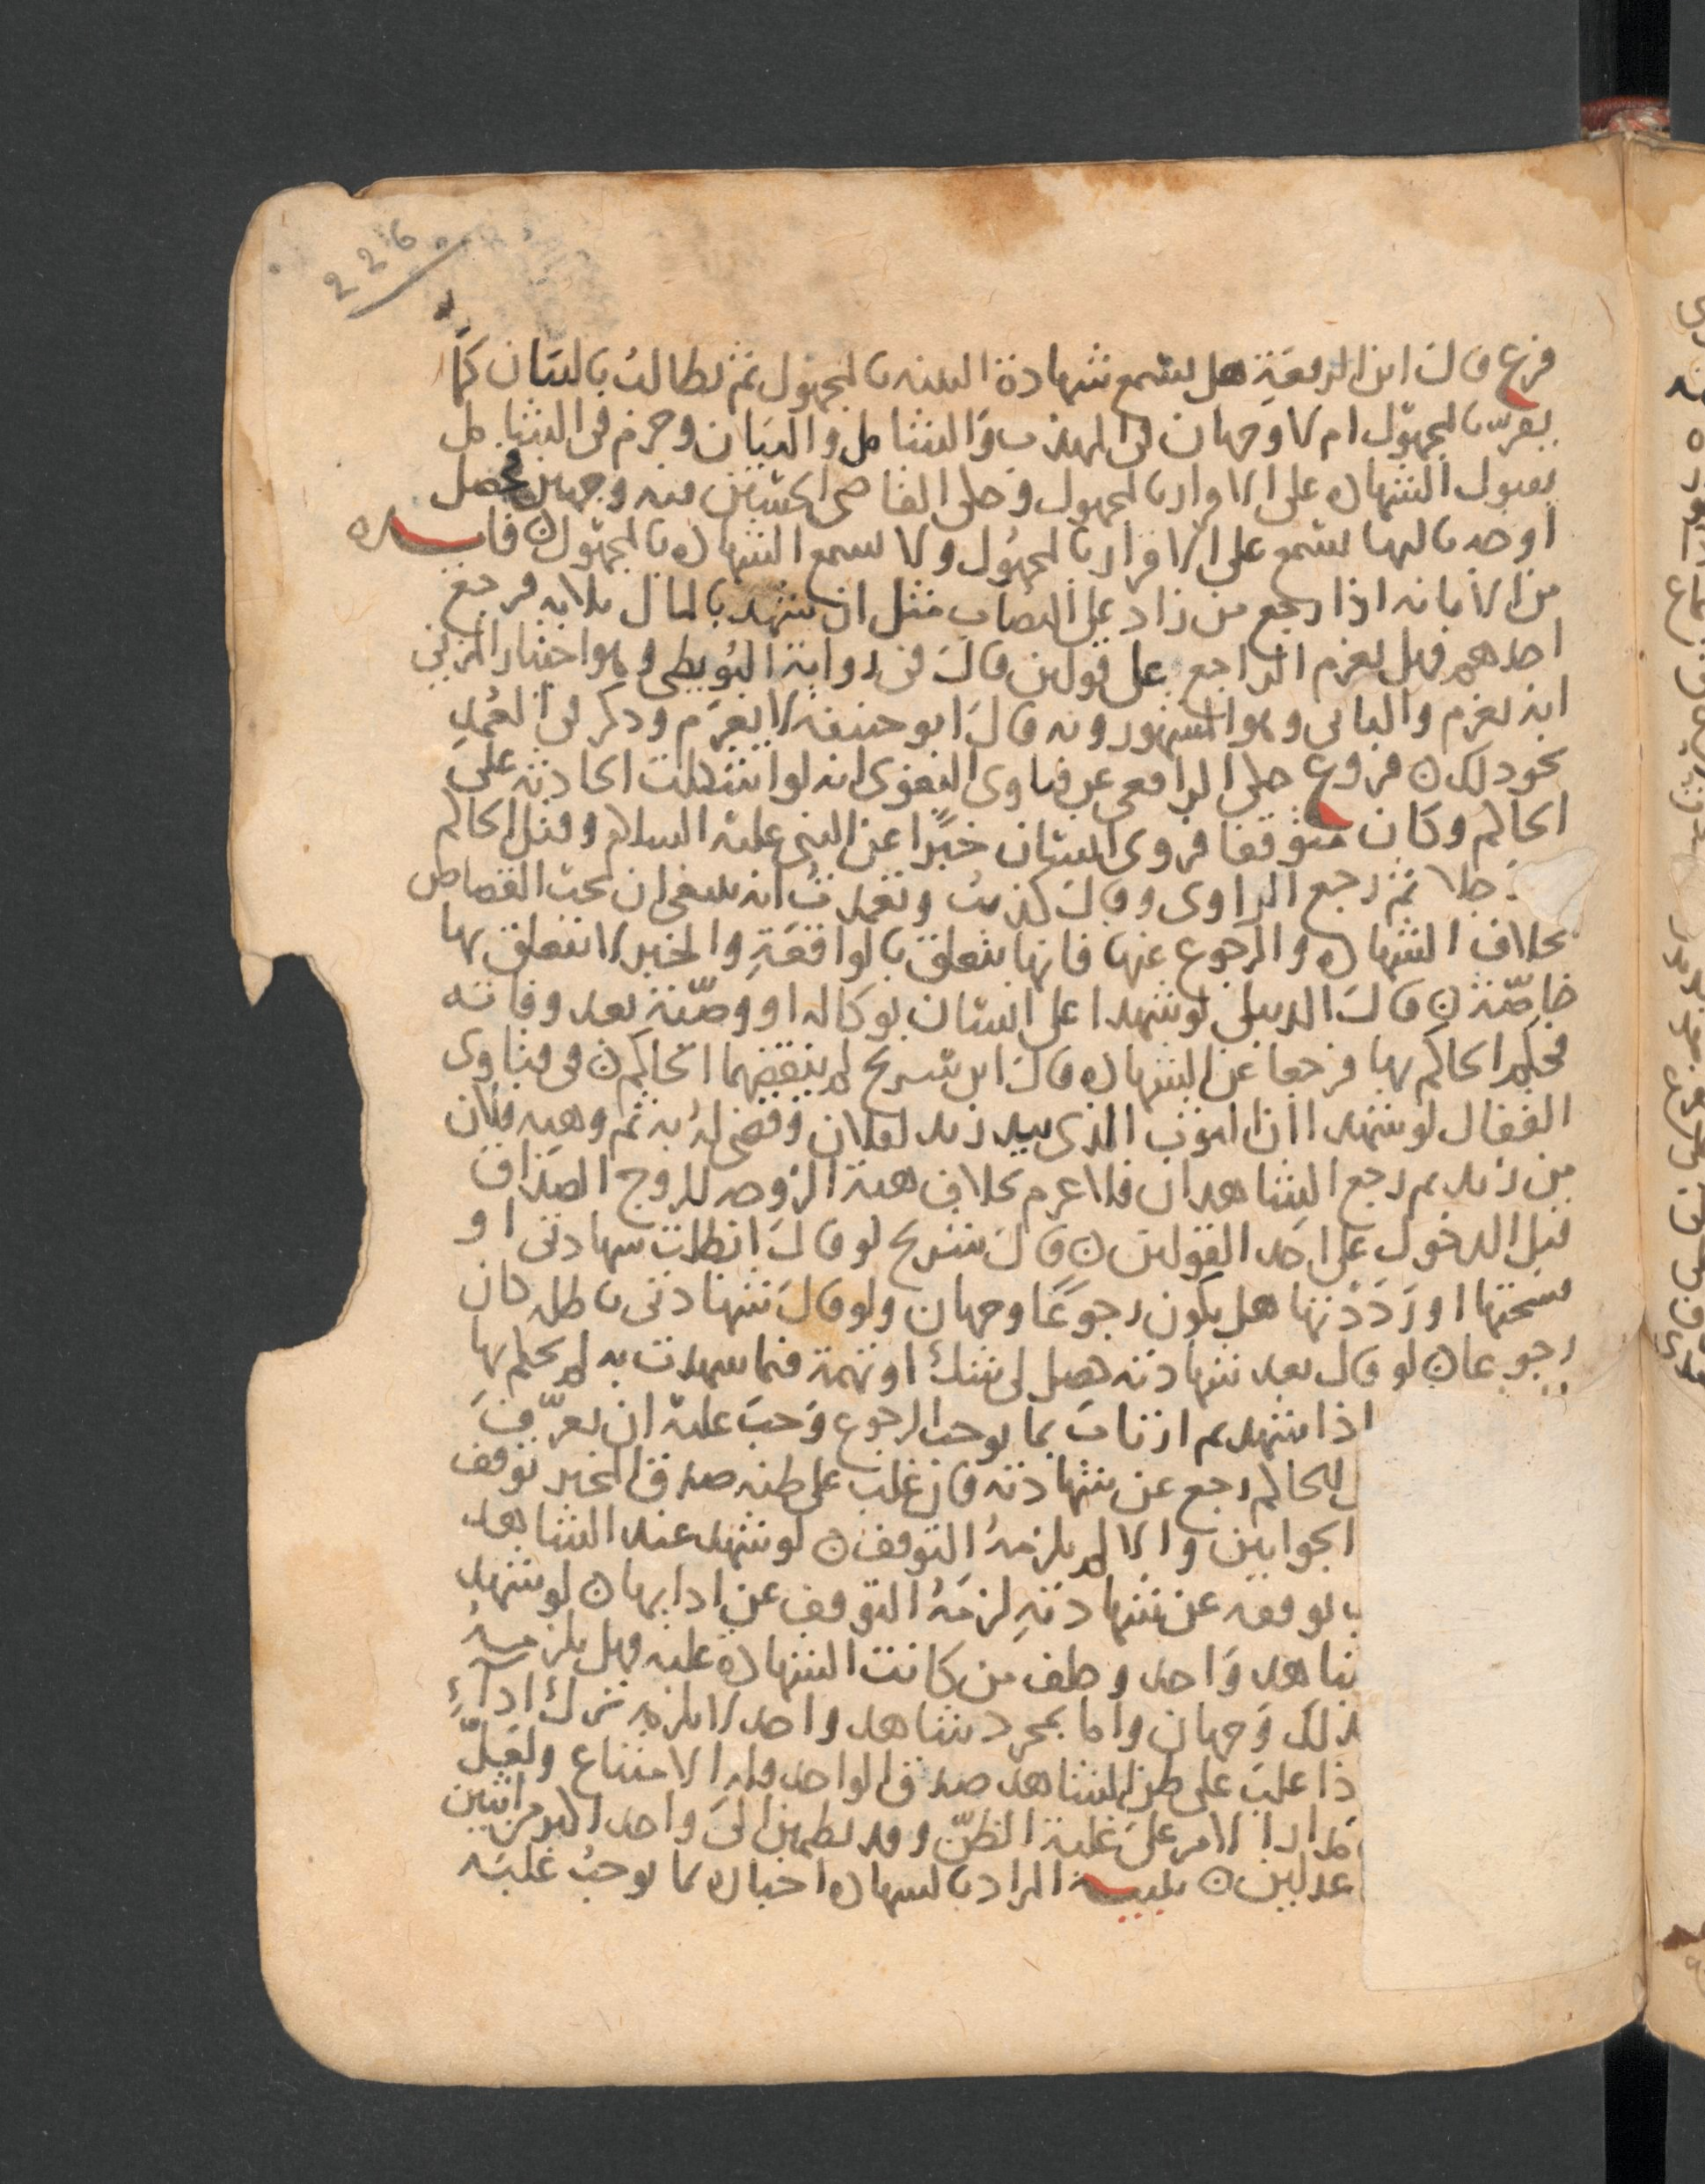 226
فرع قال ابن الرفعة هل يسمع شهادة البينة بالمجهول ثم يطالب بالبيان كما
يقر بالمجهول ام لا وجهان في المهذب والشامل والبيان وجزم في الشامل
بقبول الشهاده على الاقرار بالمجهول وحكى القاضي الحسين فيه وجهين فحصل
اوجه ثالثها يسمع على الاقرار بالمجهول ولا يسمع الشهاده بالمجهول ن فايده
من الابانه اذا رجع من زاد على النصاب مثل ان شهد بالمال ثلاثه فرجع
احدهم فهل يغرم الراجع على قولين قال في رواية البويطي وهو اختيار المزني
انه يغرم والثاني وهو المشهور وبه قال ابو حنيفة لا يغرم وذكر في العمد
نحو ذلك ن فروع حكى الرافعي عن فتاوى البغوي انه لو اشكلت الحادثه على
الحاكم وكان متوقفا فروى انسان خبرا عن النبي عليه السلام وقتل الحاكم
رجلا ثم رجع الراوي وقال كذبت وتعمدت انه ينبغي ان يجب القصاص
بخلاف الشهاده والرجوع عنها فانها يتعلق بالواقعة والخبر لا يتعلق بها
خاصة ن قال الدبيلي لو شهدا على انسان بوكالة او وصية بعد وفاته
فحكم الحاكم بها فرجعا عن الشهاده قال ابن سريج لم ينقضهما الحاكم ن في فتاوى
القفال لو شهدا ان الثوب الذي بيد زيد لفلان وقضى له به ثم وهبه فلان
من زيد ثم رجع الشاهدان فلا غرم بخلاف هبة الزوجه للزوج الصداق
قبل الدخول على احد القولين ن قال شريح لو قال ابطلت شهادتي او
فسختها او رددتها هل يكون رجوعا وجهان ولو قال شهادتي باطله كان
رجوعا ن لو قال بعد شهادته حصل لي شك او تهمة فيما شهدت به لم يحكم بها
اذا شهد ثم ارتاب بما يوجب الرجوع وجب عليه ان يعرف
الحاكم رجع عن شهادته فان غلب على ظنه صدق المخبر توقف
الجوابين والا لم يلزمه التوقف ن لو شهد عند الشاهد
بوقفه عن شهادته لزمه التوقف عن ادايها ن لو شهد
شاهد واحد وحلف من كانت الشهادة عليه فهل يلزمه
ذلك وجهان واما بمجرد شاهد واحد لا يلزمه ترك اداء
ذا غلب على ظن الشاهد صدق الواحد فله الامتناع ولعل
مدار الامر على غلبة الظن وقد يطمئن الى واحد اكثر من اثنين
عدلين ن تنبيه المراد بالشهاده اخباره بما يوجب غلبه